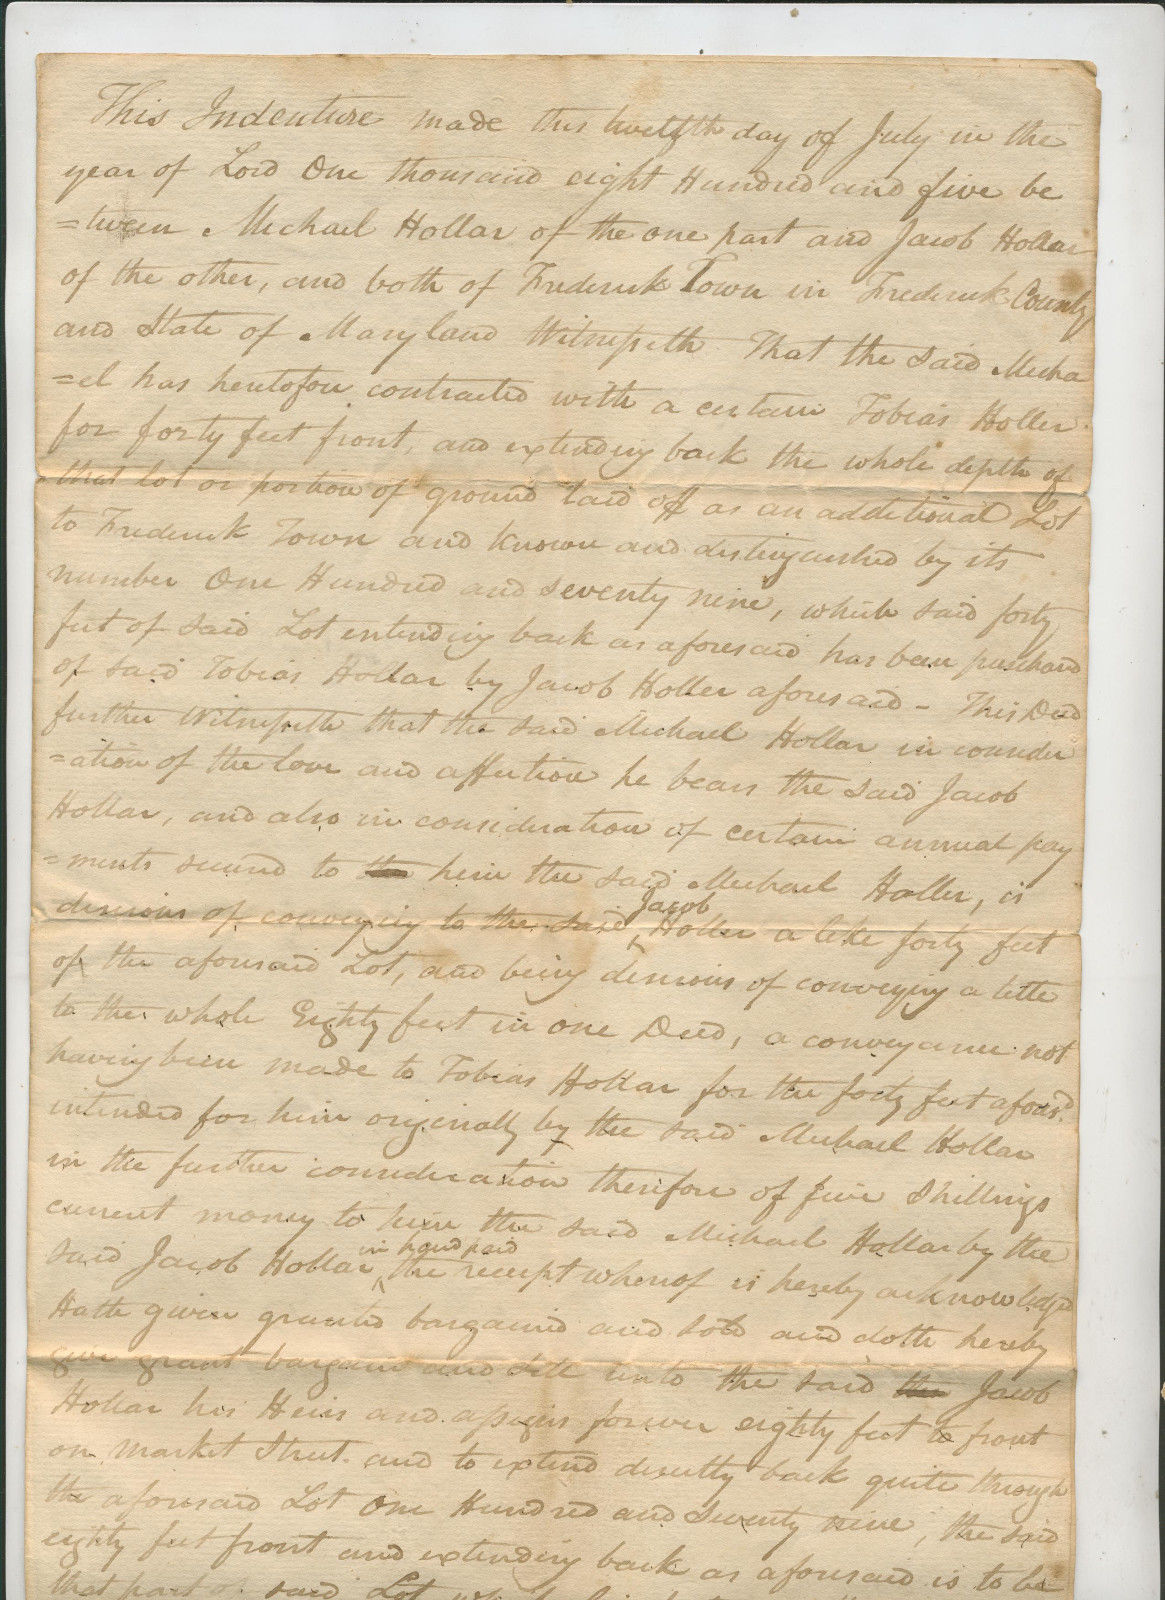 This Indenture made this twelfth day of July in the
year of Lord One thousand eight Hundred and five be
=tween Michael Hollar of the one part and Jacob Hollar
of the other, and both of Frederick Town in Frederick County
and State of Maryland Witnesseth That the said Micha
=el has heretofore contracted with a certain Tobias Holler
for forty feet front, and extending back the whole depth of
that lot or portion of ground laid off as an additional Lot
to Frederick Town and known and distinguished by its
number One Hundred and seventy nine, which said forty
feet of said Lot extending back as aforesaid has been purchased
of said Tobias Hollar by Jacob Holler aforesaid - This Deed
further Witnesseth that the said Michael Hollar in consider
=ation of the love and affection he bears the said Jacob
Hollar, and also in consideration of certain annual pay
=ments secured to him the said Michael Holler, is
desirous of conveying to the said Jacob Holler a like forty feet
of the aforesaid Lot, and being desirous of conveying a title
to the whole Eighty feet in one Deed, a conveyance not
having been made to Tobias Hollar for the forty feet aforesd.
intended for him originally by the said Michael Hollar
in the further consideration therefore of five Shillings
current money to him the said Michael Hollar by the
said Jacob Hollar in hand paid the receipt whereof is hereby acknowledged
Hath given granted bargained and sold and doth hereby
give grant bargain and sell unto the said Jacob
Hollar his Heirs and assigns forever eighty feet to front
on Market Street and to extend directly back quite through
the aforesaid Lot One Hundred and Seventy nine, the said
eighty feet front and extending back as aforesaid is to be
that part of said Lot